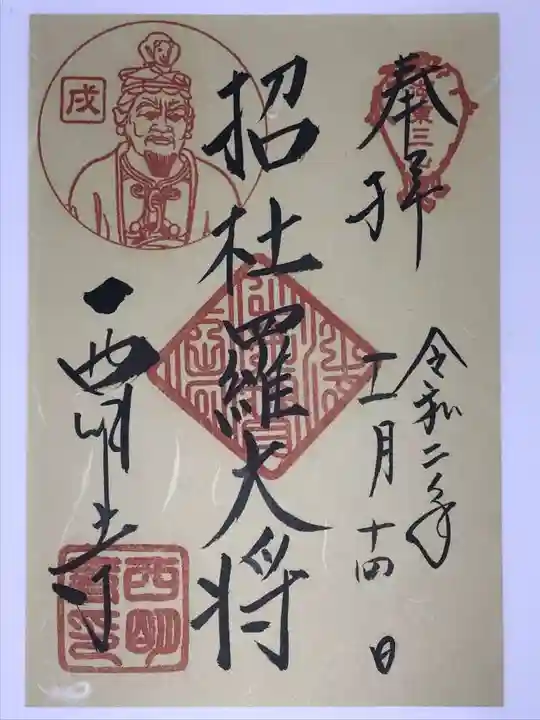 奉拜
令和二年
十一月十四日
招杜羅大将
西明寺
戌
西明